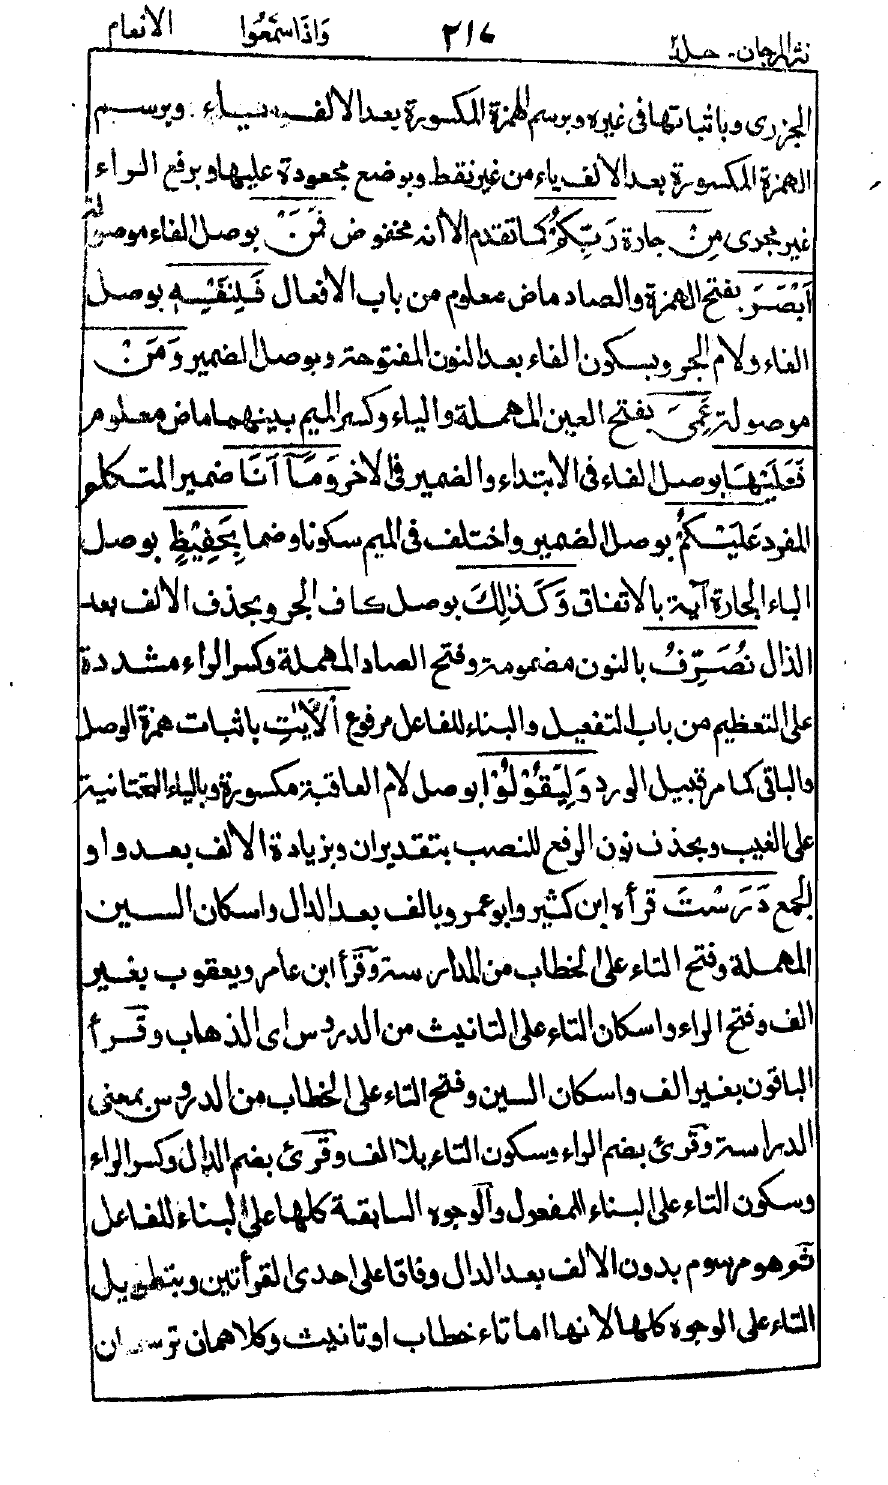 نثر المرجان - جلد ٢١٧ وَاِذَا سَمِعُوا الانعام
الجزرى وباثباتها فى غيره ويرسم الهمزة المكسورة بعد الالف بياء ويرسم
الهمزة المكسورة بعد الالف ياء من غير نقط وبوضع مجعودة عليها وبرفع الراء
غير مجرى مِنْ جارة رَبِّكُمْ كما تقدم الا انه مخفوض فَمَنْ بوصل الفاء موصولة
اَبْصَرَ بفتح الهمزة والصاد ماض معلوم من باب الافعال فَلِنَفْسِهٖ بوصل
الفاء ولام الجر وبسكون الفاء بعد النون المفتوحة وبوصل الضمير وَمَنْ
موصولة عَمِىَ بفتح العين المهملة والياء وكسر الميم بينهما ماض معلوم
فَعَلَيْهَا بوصل الفاء فى الابتداء والضمير فى الاخر وَمَآ اَنَا ضمير المتكلم
المفرد عَلَيْكُمْ بوصل الضمير واختلف فى الميم سكونا وضما بِحَفِيْظٍ بوصل
الباء الجارة آية بالاتفاق وَكَذٰلِكَ بوصل كاف الجر وبحذف الالف بعد
الذال نُصَرِّفُ بالنون مضمومة وفتح الصاد المهملة وكسر الراء مشددة
على التعظيم من باب التفعيل والبناء للفاعل مرفوع الْاٰيٰتِ باثبات همزة الوصل
والباقى كما مر قبيل الورد وَلِيَقُوْلُوْا بوصل لام العاقبة مكسورة وبالياء التحتانية
على الغيب وبحذف نون الرفع للنصب بتقدير ان وبزيادة الالف بعد واو
الجمع دَرَسْتَ قرأه ابن كثير وابو عمرو بالف بعد الدال واسكان السين
المهملة وفتح التاء على الخطاب من المدارسة وقرأ ابن عامر ويعقوب بغير
الف وفتح الراء واسكان التاء على التانيث من الدرس اى الذهاب وقرأ
الباقون بغير الف واسكان السين وفتح التاء على الخطاب من الدروس بمعنى
الدراسة وقرئ بضم الراء وسكون التاء بلا الف وقرئ بضم الدال وكسر الراء
وسكون التاء على البناء للمفعول والوجوه السابقة كلها على البناء للفاعل
فهو مرسوم بدون الالف بعد الدال وفاقا على احدى القرأتين وبتطويل
التاء على الوجوه كلها لانها اما تاء خطاب او تانيث وكلاهما ترسمان